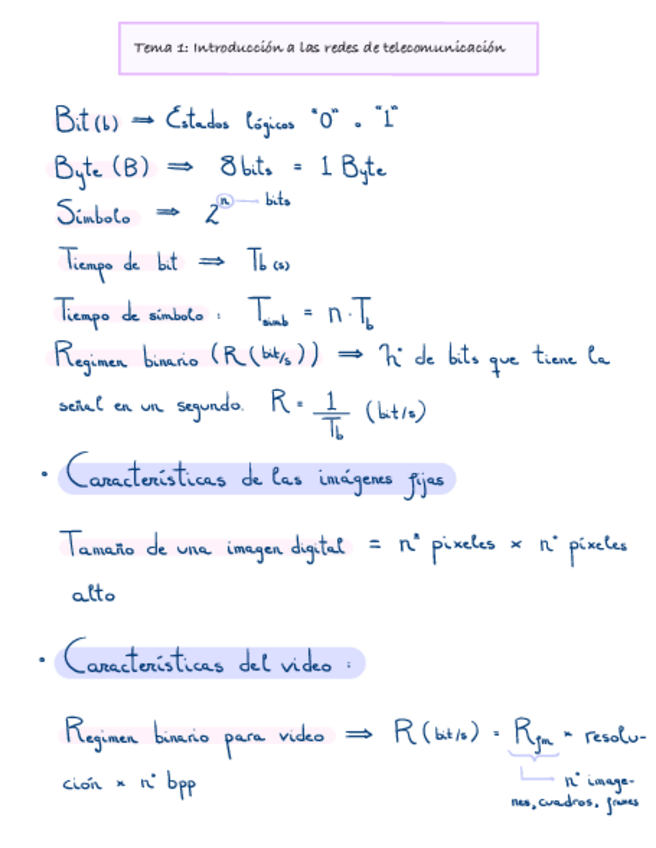 Tema 1: Introducción a las redes de telecomunicación
Bit (b) ⇒ Estados lógicos "0" o "1"
Byte (B) ⇒ 8 bits = 1 Byte
Símbolo ⇒ 2^n — bits
Tiempo de bit ⇒ Tb (s)
Tiempo de símbolo : Tsimb = n · Tb
Regimen binario (R (bit/s)) ⇒ nº de bits que tiene la
señal en un segundo. R = 1/Tb (bit/s)
• Características de las imágenes fijas
Tamaño de una imagen digital = nº pixeles × nº píxeles
alto
• Características del video :
Regimen binario para video ⇒ R (bit/s) = Rfm × resolu-
ción × nº bpp
nº image-
nes, cuadros, frames